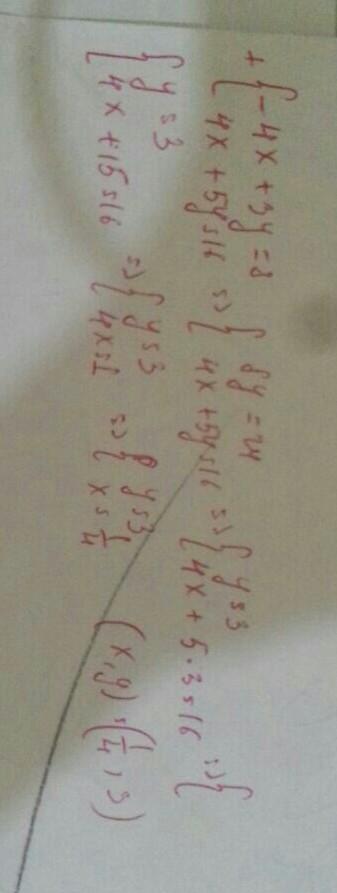 + { -4x + 3y = 8
{ 4x + 5y = 16 => { 8y = 24
4x + 5y = 16 => { y = 3
4x + 5·3 = 16 => {
{ y = 3
4x + 15 = 16 => { y = 3
4x = 1 => { y = 3
x = 1/4 (x, y) = (1/4, 3)